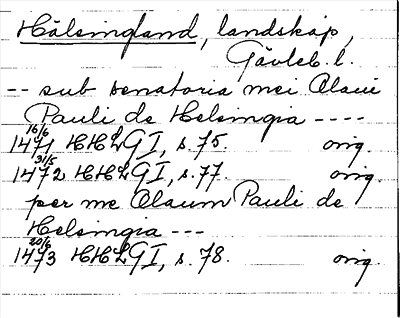 Hälsingland, landskap,
Gävleb. l.
-- sub senatoria mei Olaui
Pauli de Helsingia ----
16/6
1471 HHLGI, s. 75. orig.
31/5
1472 HHLGI, s. 77. orig.
per me Olaum Pauli de
Helsingia ---
20/6
1473 HHLGI, s. 78. orig.